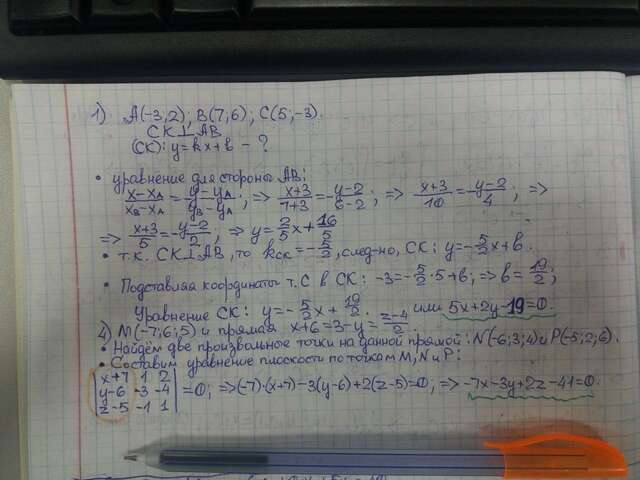 1) A(-3;2); B(7;6); C(5;-3).
CK⊥AB
(CK): y=kx+b - ?
• уравнение для стороны AB:
(x-x_A)/(x_B-x_A) = (y-y_A)/(y_B-y_A); => (x+3)/(7+3) = (y-2)/(6-2); => (x+3)/10 = (y-2)/4; =>
=> (x+3)/5 = (y-2)/2; => y = 2/5 x + 16/5
• т.к. CK⊥AB, то k_CK = -5/2, след-но, CK: y = -5/2 x + b.
• Подставляя координаты т. C в CK: -3 = -5/2 · 5 + b; => b = 19/2;
Уравнение CK: y = -5/2 x + 19/2. или 5x+2y-19=0.
4) M(-7;6;5) и прямая x+6=3-y=(z-4)/2.
• Найдём две произвольные точки на данной прямой: N(-6;3;4) и P(-5;2;6).
• Составим уравнение плоскости по точкам M, N и P:
|x+7 1 2|
|y-6 -3 -4| =0; =>(-7)·(x+7)-3(y-6)+2(z-5)=0; => -7x-3y+2z-41=0.
|z-5 -1 1|